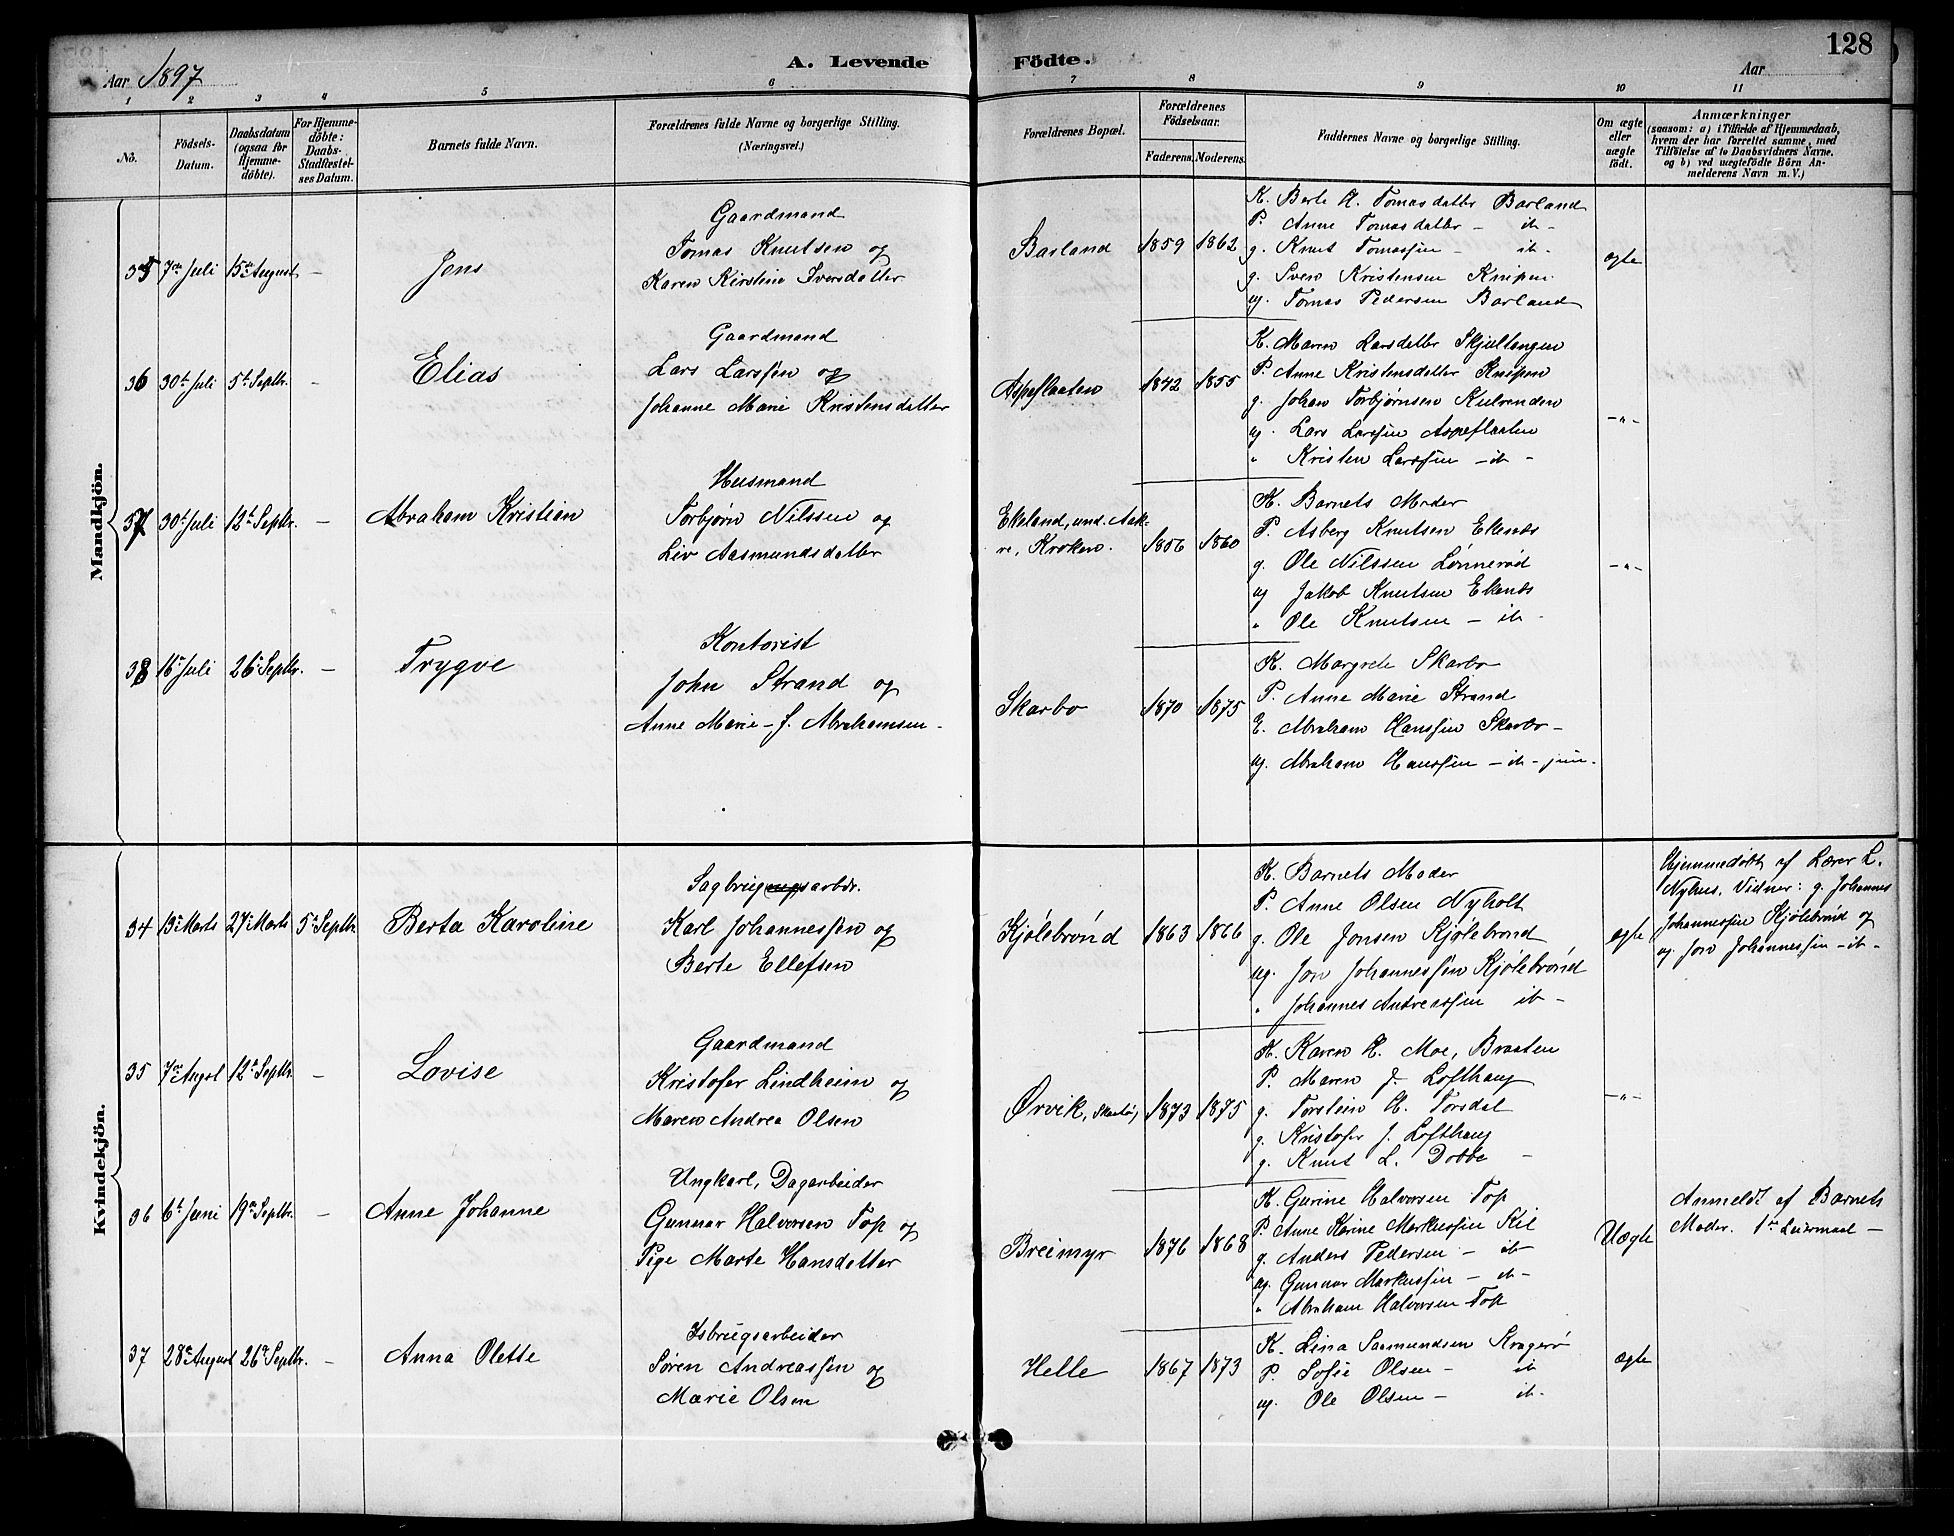 Aar 1897
A. Levende
Födte.
Aar
128
1 2 3 4 5 6 7 8 9 10 11
No.
Födsels-
Datum.
Daabsdatum
(ogsaa for
Hjemme-
döbte).
For Hjemme-
döbte:
Daabs-
Stadfæstel-
ses Datum.
Barnets fulde Navn.
Forældrenes fulde Navne og borgerlige Stilling.
(Næringsvei.)
Forældrenes Bopæl.
Forældrenes
Födselsaar.
Faderens.
Moderens.
Faddernes Navne og borgerlige Stilling.
Om ægte
eller
uægte
födt.
Anmærkninger
(saasom: a) i Tilfælde af Hjemmedaab,
hvem der har forrettet samme, med
Tilföielse af to Daabsvidners Navne.
og b) ved uægtefödte Börn An-
melderens Navn m. V.)
Mandkjön.
35 7de Juli 15de August –
Jens
Gaardmand
Tomas Knutsen og
Karen Kirstine Iversdatter
Barland
1859 1862
K. Berte A. Tomasdatter Barland
P. Anne Tomasdatter – ib –
g. Knut Tomassen – ib –
g. Sven Kristensen Knipen
ug. Tomas Pedersen Barland
ægte
36 30te Juli 5te Septbr. –
Elias
Gaardmand
Lars Larssen og
Johanne Marie Kristensdatter
Aspeflaaten
1842 1855
K. Maren Larsdatter Skjeltangen
P. Anne Kristensdatter Knipen
g. Johan Torbjørnsen Kulvenden
ug. Lars Larssen Aspeflaaten
" Kristen Larssen – ib –
– " –
37 30te Juli 12te Septbr. –
Abraham Kristian
Husmand
Torbjørn Nilssen og
Liv Aasmundsdatter
Ekeland, und. Aak-
re, Kroken.
1856 1860
K. Barnets Moder
P. Asberg Knutsen Ekenæs
g. Ole Nilssen Lønnerød
ug Jakob Knutsen Ekenæs
" Ole Knutsen – ib –
– " –
38 16de Juli 26de Septbr. –
Trygve
Kontorist
John Strand og
Anne Marie – J. Abrahamsen –
Skarbo
1870 1875
K. Margrete Skarbo
P. Anne Marie Strand
E. Abraham Hanssen Skarbo –
ug. Abraham Hanssen – ib – jun.
Kvindekjön.
34 13de Marts 27de Marts 5te Septbr
Berta Karoline
Sagbrugsarbdr.
Karl Johannessen og
Berte Ellefsen
Kjølebrønd
1863 1866
K. Barnets Moder
P. Anne Olsen Nyholt
g. Ole Jonsen Kjølebrønd
ug. Jon Johannessen Kjølebrønd
" Johannes Andreassen ib –
ægte
Hjemmedøbt af Lærer L.
Nyhus. Vidner: g. Johannes
Johannessen Kjølebrønd og
ug. Jon Johannessen – ib –
35 7de Augst 12te Septbr. –
Lovise
Gaardmand
Kristofer Lindheim og
Maren Andrea Olsen
Ørvik, Skaatø,
1873 1875
K. Karen H. Moe, Braaten
P. Maren J. Lofthaug
g. Torstein H. Torsdal
g. Kristofer J. Lofthaug
g. Knut L. Dobbe –
– " –
36 6te Juni 19de Septbr. –
Anne Johanne
Ungkarl, Dagarbeider
Gunnar Halvorsen Top og
Pige Marte Hansdatter
Breimyr
1876 1868
K. Gurine Halvorsen Top
P. Anne Karine Markussen Kil
g. Anders Pedersen – ib –
ug. Gunnar Markussen – ib –
" Abraham Halvorsen Top
Uægte
Anmeldt af Barnets
Moder. 1ste Leiermaal –
37 28de August 26de Septbr. –
Anna Olette
Isbrugsarbeider
Søren Andreassen og
Marie Olsen
Helle
1867 1873
K. Lina Saamundsen Kragerø
P. Sofie Olsen – ib
ug. Ole Olsen – ib –
ægte